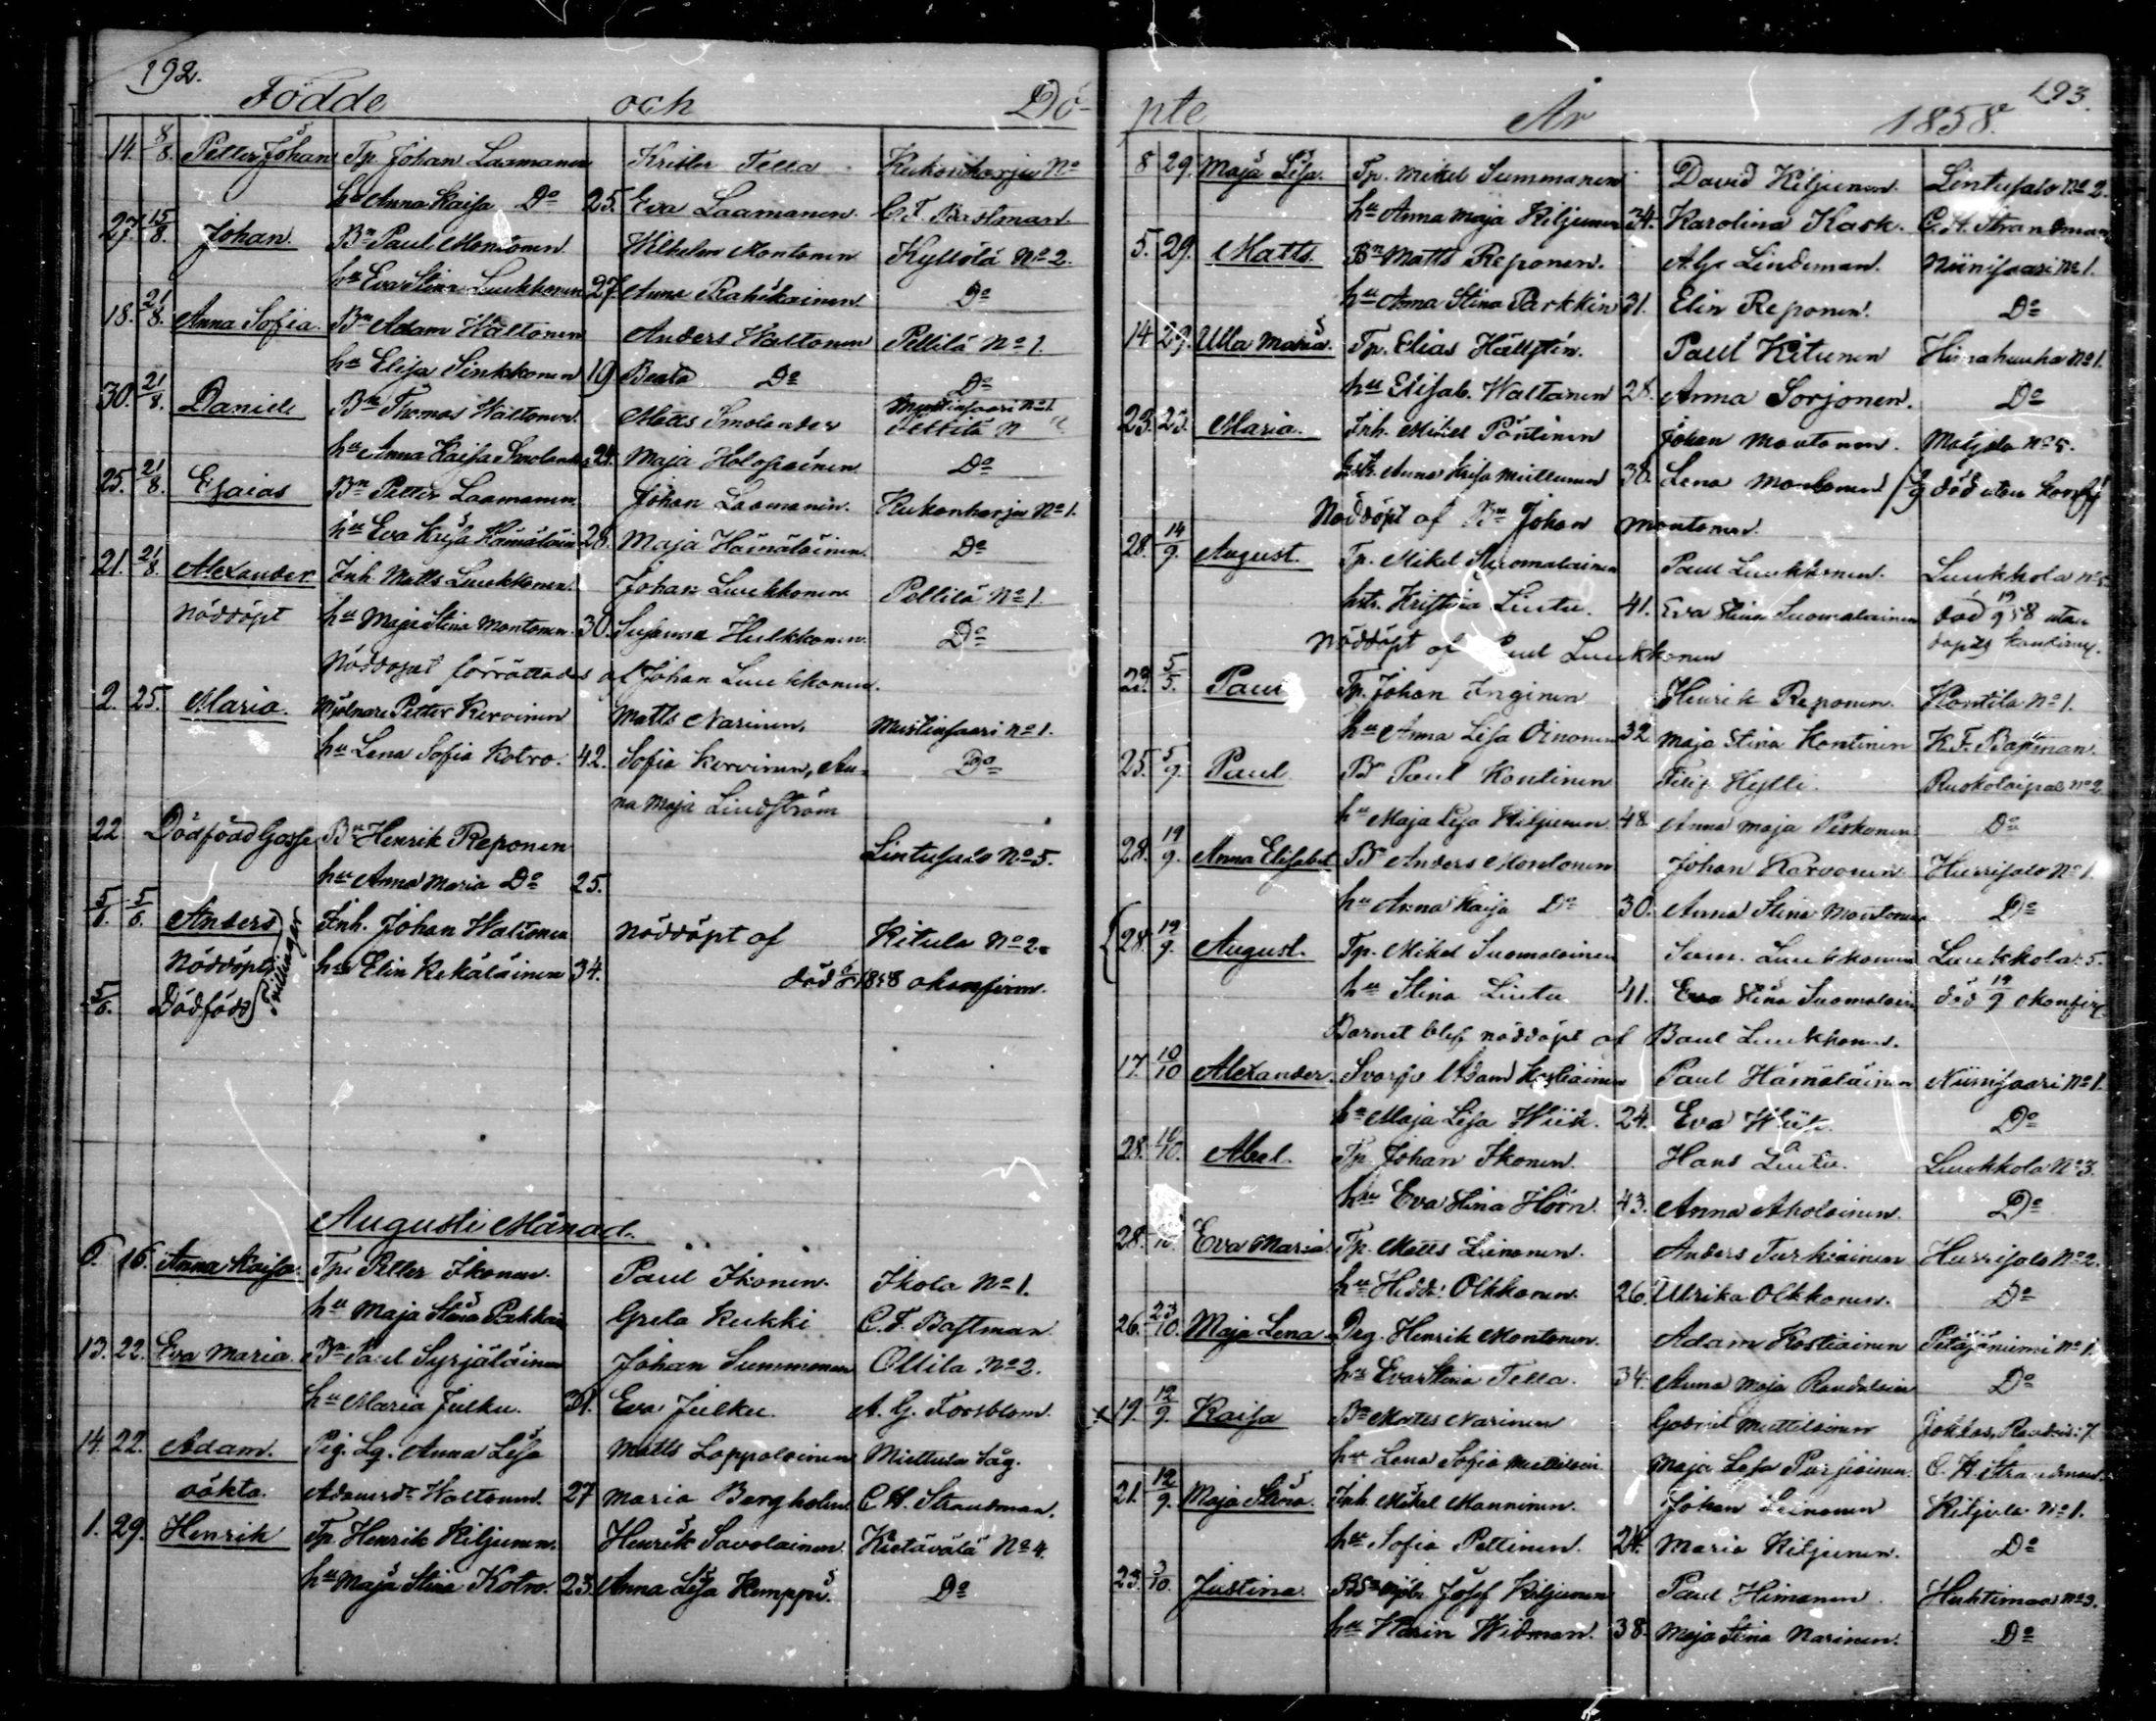 192.
Födde och Dö-
14. 8/8. Petter Johan Tp. Johan Laamanen Krister Tella Kukonharju No
hu Anna Kaisa Do 25. Eva Laamanen C. F. Bastman
27. 15/8. Johan. Bn Paul Montonen Wilhelm Montonen Kyllölä No 2.
hu Eva Stina Luukkonen 27. Anna Rahikainen Do
18. 21/8. Anna Sofia. Bn Adam Waltonen Anders Waltonen Pellilä No 1.
hu Elisa Sinkkonen 19 Beata Do Do
30. 21/8. Daniel Bn Thomas Waltonen. Matts Smolander Mustinsaari No 1. Pellilä N
hu Anna Kaisa Smolander 24. Maja Holopainen Do
25. 21/8. Esaias Bn Petter Laamanen. Johan Laamanen. Kukonharju No 1.
hu Eva Kaisa Hämäläinen 28. Maja Hämäläinen. Do
21. 21/8. Alexander. Inh. Matts Luukkonen. Johan Luukkonen Pellilä No 1.
nöddöpt hu Maja Stina Montonen. 30. Susanna Hulkkonen. Do
Nöddopet förrättades af Johan Luukkonen.
2. 25. Maria. Mjölnare Petter Kervinen Matts Narinen, Mustinsaari No 1.
hu Lena Sofia Kotro. 42. Sofia Kervinen, An- Do
na Maja Lindström
22 Dödfödd Gosse Bn Henrik Reponen Lintusalo No 5.
hu Anna Maria Do 25.
5/6. 5/6. Anders Inh. Johan Waltonen nöddöpt af Kitula No 2.
Nöddöpt hu Elin Kekäläinen 34. död 1858 okonfirm.
5/6. Dödfödd Tvillingar
Augusti Månad.
6. 16. Anna Kaisa. Tp. Petter Ikonen. Paul Ikonen. Ikola No 1.
hu Maja Stina Pakkain Greta Kukki C. F. Bastman.
13. 22. Eva Maria. Bn Paul Syrjäläinen Johan Summanen Ollila No 2.
hu Maria Julku. 31. Eva Julku. A. G. Forsblom.
14. 22. Adam. Pig. Lg. Anna Lisa Matts Lappalainen Miettula Såg.
oäkta. Adamsdr Waltonen. 27 Maria Bergholm C. H. Strandman.
1. 29. Henrik Tp. Henrik Kiljunen. Henrik Savolainen. Kietävälä No 4.
hu Maja Stina Kotro. 23. Anna Lisa Kemppi. Do
193.
pte År 1858.
8 29. Maja Lisa. Tp. Mikel Summanen David Kiljunen. Lintusalo No 2.
hu Anna Maja Kiljunen 34. Karolina Kask. C. H. Strandman
5. 29. Matts. Bn Matts Reponen. A. Lindeman. Niinisaari No 1.
hu Anna Stina Parkkin 31. Elin Reponen. Do
14 29. Ulla Maria. Tp. Elias Hällstén. Paul Kitunen Hurrahuuha No 1.
hu Elisab. Waltanen 28. Anna Sorjonen. Do
23. Maria. Inh. Mikel Pöntinen Johan Montonen. No 5.
Anna Kaisa Miettunen 38. Lena Montonen död utan konfir
Nöddöpt af Bn Johan Montonen.
28. 14/9. August. Tp. Mikel Suomalainen Paul Luukkonen. Luukkola No 5
hstr. Kristina Lintu. 41. Eva Stina Suomalainen död 19/9 58 utan
Nöddöpt af Paul Luukkonen dopets konfirm.
23. 5/5. Paul Tp. Johan Inginen Henrik Reponen. Kontila No 1.
hu Anna Lisa Oinonen 32 Maja Stina Kontinen K. F. Bastman.
25. 5/9. Paul. Bn Paul Kontinen Filip Hytti. Ruokolaipal No 2
hu Maja Lisa Kiljunen 48. Anna Maja Peskonen Do
28. 19/9. Anna Elisabet Bn Anders Montonen Johan Karvonen Hurrisalo No 1.
hu Anna Kaisa Do 30. Anna Stina Montonen Do
28. 19/9. August. Tp. Mikel Suomalainen Sam. Luukkonen Luukkola 5.
hu Stina Lintu 41. Eva Stina Suomalain död 19/9 okonfir
Barnet blef nöddöpt af Paul Luukkonen.
17. 10/10 Alexander. Adam Kostiainen Paul Hämäläinen Niinisaari No 1.
hu Maja Lisa Wiik. 24. Eva Wiik. Do
28. Abel. Tp. Johan Ikonen. Hans Lintu. Luukkola No 3.
hu Eva Stina Hörn. 43. Anna Aholainen. Do
28. Eva Maria. Tp. Matts Leinonen. Anders Turkiainen Hurrisalo No 2.
hu Hedd: Olkkonen. 26. Ulrika Olkkonen. Do
26. 23/10. Maja Lena Drg. Henrik Montonen. Adam Kostiainen Petäjäniemi No 1.
hu Eva Stina Tella. 34. Anna Maja Do
x 19. 12/9. Kaisa Bn Matts Narinen Gabriel Miettilainen 7.
hu Lena Sofia Miettinen Maja Lisa Purhiainen. C. H. Strandman.
21. 12/9. Maja Stina. Inh. Mikel Manninen. Johan Leinonen Kiljula No 1.
hu Sofia Peltinen. 24. Maria Kiljunen. Do
23. 3/10. Justina. Josef Kiljunen Paul Himanen. Huhtimaa No 3.
hu Karin Widman. 38. Maja Stina Narinen. Do